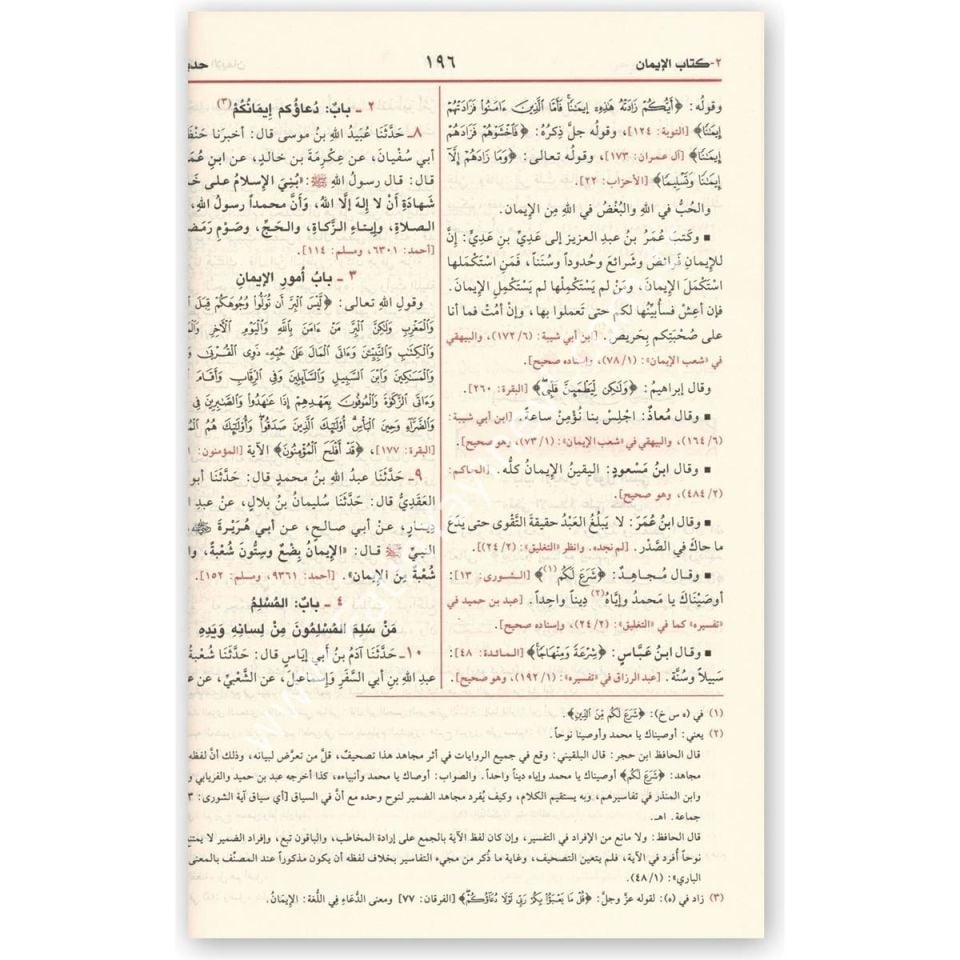 ٢-كتاب الإيمان
١٩٦
وقولُه: ﴿أَيُّكُمْ زَادَتْهُ هَٰذِهِۦٓ إِيمَٰنًاۚ فَأَمَّا ٱلَّذِينَ ءَامَنُوا۟ فَزَادَتْهُمْ
إِيمَٰنًا﴾ [التوبة: ١٢٤]، وقوله جلَّ ذِكرُهُ: ﴿فَٱخْشَوْهُمْ فَزَادَهُمْ
إِيمَٰنًا﴾ [آل عمران: ١٧٣]، وقولُه تعالى: ﴿وَمَا زَادَهُمْ إِلَّآ
إِيمَٰنًا وَتَسْلِيمًا﴾ [الأحزاب: ٢٢].
والحُبُّ في اللهِ والبُغْضُ في اللهِ مِن الإيمان.
▪ وكتبَ عُمَرُ بنُ عبدِ العزيز إلى عَدِيِّ بنِ عَدِيٍّ: إنَّ
للإيمانِ فَرائضَ وشَرائعَ وحُدوداً وسُنَناً، فَمَنِ اسْتَكْمَلَها
اسْتَكْمَلَ الإيمانَ، ومَنْ لم يَسْتَكْمِلْها لم يَسْتَكْمِلِ الإيمانَ.
فإن أعِشْ فسأُبيِّنُها لكم حتى تَعملوا بها، وإنْ أَمُتْ فما أنا
على صُحْبَتِكم بِحَريصٍ. [ابن أبي شيبة: (٦/ ١٧٢)، والبيهقي
في «شعب الإيمان»: (١/ ٧٨)، وإسناده صحيح].
وقال إبراهيمُ: ﴿وَلَٰكِن لِّيَطْمَئِنَّ قَلْبِى﴾ [البقرة: ٢٦٠].
▪ وقال مُعاذٌ: اجْلِسْ بنا نُؤمِنْ ساعةً. [ابن أبي شيبة:
(٦/ ١٦٤)، والبيهقي في «شعب الإيمان»: (١/ ٧٣)، وهو صحيح].
▪ وقال ابنُ مَسْعودٍ: اليَقينُ الإيمانُ كلُّه. [الحاكم:
(٢/ ٤٨٤)، وهو صحيح].
▪ وقال ابنُ عُمَرَ: لا يَبلُغُ العَبْدُ حقيقةَ التَّقْوى حتى يَدَعَ
ما حاكَ في الصَّدْر. [لم نجده. وانظر «التغليق»: (٢/ ٢٤)].
▪ وقـال مُـجـاهـدٌ: ﴿شَرَعَ لَكُم﴾(١) [الـشـورى: ١٣]:
أوصَيْناكَ يا محمدُ وإيَّاهُ(٢) دِيناً واحداً. [عبد بن حميد في
«تفسيره» كما في «التغليق»: (٢/ ٢٤)، وإسناده صحيح].
▪ وقال ابنُ عبَّاسٍ: ﴿شِرْعَةً وَمِنْهَاجًا﴾ [المائدة: ٤٨]:
سَبيلاً وسُنَّة. [عبد الرزاق في «تفسيره»: (١/ ١٩٢)، وهو صحيح].
٢ ـ بابٌ: دُعاؤُكم إيمَانُكُمْ(٣)
٨ـ حَدَّثَنَا عُبَيدُ اللهِ بنُ موسى قال: أخبرَنا
أبي سُفْيانَ، عن عِكْرِمةَ بنِ خالدٍ، عن ابنِ
قال: قال رسولُ اللهِ ﷺ: «بُنِيَ الإسلامُ على
شهادةِ أنْ لا إلهَ إلَّا اللهُ، وأنَّ محمداً رسولُ اللهِ،
الصلاةِ، وإيتاءِ الزَّكاةِ، والحَجِّ، وصَوْمِ
[أحمد: ٦٣٠١، ومسلم: ١١٤].
٣ ـ بابُ أمورِ الإيمانِ
وقولِ اللهِ تعالى: ﴿لَّيْسَ ٱلْبِرَّ أَن تُوَلُّوا۟ وُجُوهَكُمْ قِبَلَ
وَٱلْمَغْرِبِ وَلَٰكِنَّ ٱلْبِرَّ مَنْ ءَامَنَ بِٱللَّهِ وَٱلْيَوْمِ ٱلْءَاخِرِ
وَٱلْكِتَٰبِ وَٱلنَّبِيِّـۧنَ وَءَاتَى ٱلْمَالَ عَلَىٰ حُبِّهِۦ ذَوِى ٱلْقُرْبَىٰ
وَٱلْمَسَٰكِينَ وَٱبْنَ ٱلسَّبِيلِ وَٱلسَّآئِلِينَ وَفِى ٱلرِّقَابِ وَأَقَامَ
وَءَاتَى ٱلزَّكَوٰةَ وَٱلْمُوفُونَ بِعَهْدِهِمْ إِذَا عَٰهَدُوا۟ۖ وَٱلصَّٰبِرِينَ فِى
وَٱلضَّرَّآءِ وَحِينَ ٱلْبَأْسِۗ أُو۟لَٰٓئِكَ ٱلَّذِينَ صَدَقُوا۟ۖ وَأُو۟لَٰٓئِكَ هُمُ
[البقرة: ١٧٧]، ﴿قَدْ أَفْلَحَ ٱلْمُؤْمِنُونَ﴾ الآية [المؤمنون:
٩ـ حَدَّثَنَا عبدُ اللهِ بنُ محمدٍ قال: حَدَّثَنَا أبو
العَقَديُّ قال: حَدَّثَنَا سُليمانُ بنُ بلالٍ، عن عبدِ
دِينارٍ، عن أبي صالحٍ، عن أبي هُرَيْرةَ ﷺ
النبيِّ ﷺ قال: «الإيمانُ بِضْعٌ وسِتُّونَ شُعْبةً،
شُعْبةٌ مِنَ الإيمانِ». [أحمد: ٩٣٦١، ومسلم: ١٥٢].
٤ ـ بابٌ: المُسْلِمُ
مَنْ سَلِمَ المُسْلِمُونَ مِنْ لِسانِهِ ويَدِهِ
١٠ـ حَدَّثَنَا آدَمُ بنُ أبي إياسٍ قال: حَدَّثَنَا شُعْبةُ
عبدِ اللهِ بنِ أبي السَّفَرِ وإسماعيلَ، عن الشَّعْبيِّ، عن
(١) في (ه س خ): ﴿شَرَعَ لَكُم مِّنَ ٱلدِّينِ﴾.
(٢) يعني: أوصيناك يا محمد وأوصينا نوحاً.
قال الحافظ ابن حجر: قال البلقيني: وقع في جميع الروايات في أثر مجاهد هذا تصحيف، قلَّ من تعرَّض لبيانه، وذلك أنَّ لفظه
مجاهد: ﴿شَرَعَ لَكُم﴾ أوصيناك يا محمد وإياه ديناً واحداً. والصواب: أوصاك يا محمد وأنبياءه، كذا أخرجه عبد بن حميد والفريابي
وابن المنذر في تفاسيرهم، وبه يستقيم الكلام، وكيف يُفرد مجاهد الضمير لنوح وحده مع أنَّ في السياق [أي سياق آية الشورى:
جماعة. اهـ.
قال الحافظ: ولا مانع من الإفراد في التفسير، وإن كان لفظ الآية بالجمع على إرادة المخاطَب، والباقون تبع، وإفراد الضمير لا
نوحاً أُفرد في الآية، فلم يتعين التصحيف، وغاية ما ذُكر من مجيء التفاسير بخلاف لفظه أن يكون مذكوراً عند المصنِّف بالمعنى
الباري»: (١/ ٤٨).
(٣) زاد في (ه): لقوله عزَّ وجلَّ: ﴿قُلْ مَا يَعْبَؤُا۟ بِكُمْ رَبِّى لَوْلَا دُعَآؤُكُمْ﴾ [الفرقان: ٧٧] ومعنى الدُّعَاءِ في اللُّغة: الإيمَانُ.